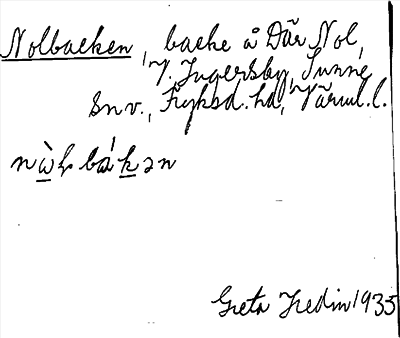 Nolbacken, backe å Där Nol,
V. Ingersby, Sunne
snv., Fryksd. hd, Värml. l.
nὼⱡ bákən
Greta Hedin 1935